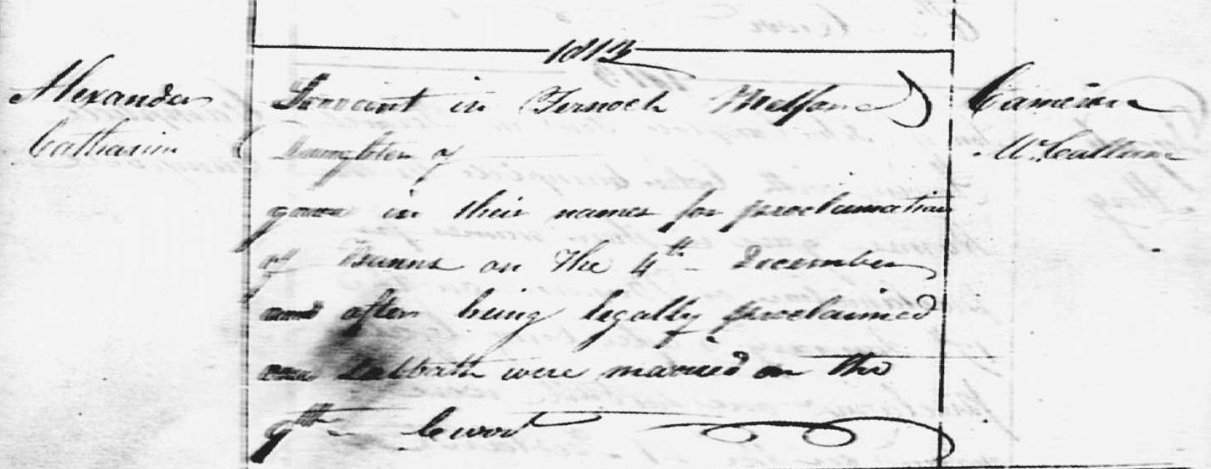 1813
Alexander Servant in Ternoch Melford Cameron
Catharine Daughter of McCallum
gave in their names for proclamation
of Banns on the 4th December
and after being legally proclaimed
one Sabbath were married on the
9th